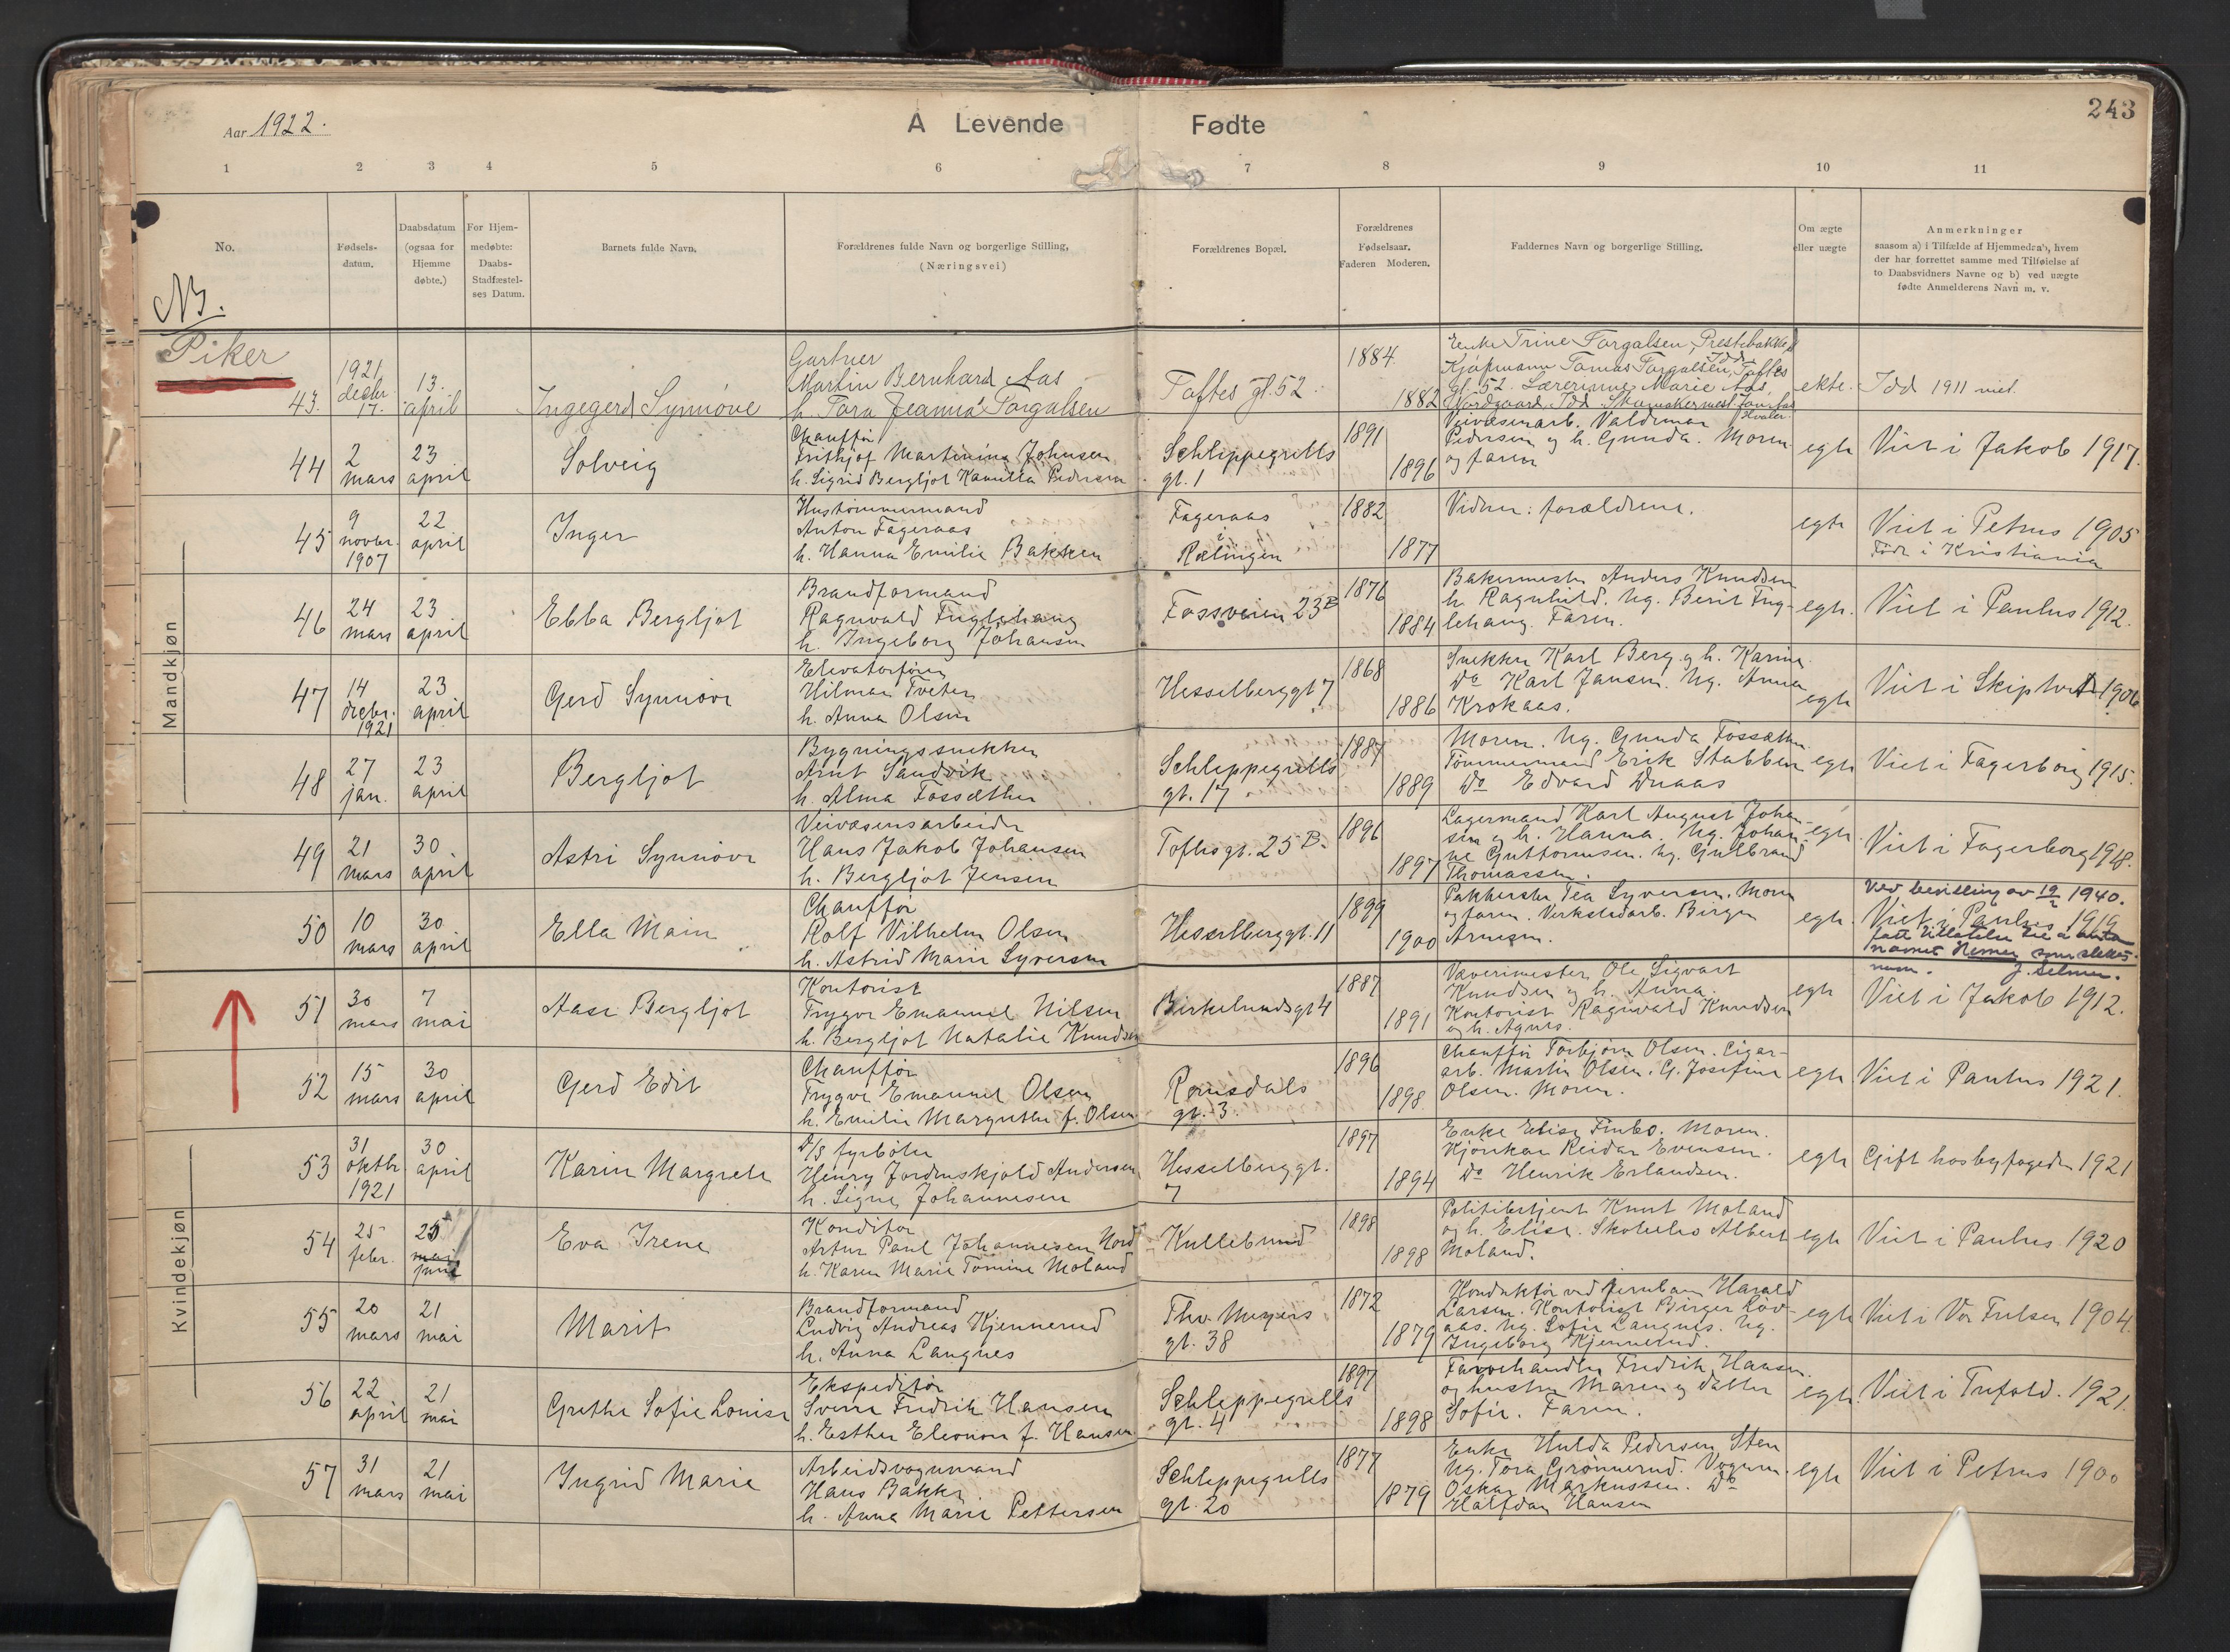 243
Aar 1922.
A Levende Fødte
1 2 3 4 5 6 7 8 9 10 11
No.
Fødsels-
datum.
Daabsdatum
(ogsaa for
Hjemme
døbte.)
For Hjem-
medøbte:
Daabs-
Stadfæstel-
ses Datum.
Barnets fulde Navn.
Forældrenes fulde Navn og borgerlige Stilling,
(Næringsvei)
Forældrenes Bopæl.
Forældrenes
Fødselsaar.
Faderen Moderen.
Faddernes Navn og borgerlige Stilling.
Om ægte
eller uægte
Anmerkninger
saasom a) i Tilfælde af Hjemmedaab, hvem
der har forrettet samme med Tilføielse af
to Daabsvidners Navne og b) ved uægte
fødte Anmelderens Navn m. v.
NB.
Piker
Mandkjøn
Kvindekjøn
43.
1921
decbr.
17.
13.
april
Ingegerd Synnøve
Gartner
Martin Bernhard Aas
h. Tora Jeanna Torgalsen
Toftes gt. 52.
1884
1882
Enke Trine Torgalsen, Prestebakke
Idd
Kjøpmann Tomas Torgalsen, Toftes
gt. 52. Lærerinne Marie Aas,
Nordgaard, Idd. Skomakermest.
Hvaler.
ekte.
Idd 1911 viet.
44
2
mars
23
april
Solveig
Chauffør
Frithjof Martinius Johnsen
h. Sigrid Bergljot Kamilla Pedersen
Schleppegrells
gt. 1
1891
1896
Veivæsenarb. Valdemar
Pedersen og h. Gunda. Moren
og faren
egte
Viet i Jakob 1917.
45
9
novbr.
1907
22
april
Inger
Hustømmermand
Anton Fageraas
h. Hanna Emilie Bakken
Fageraas
i
Rælingen
1882
1877
Vidner: forældrene.
egte
Viet i Petrus 1905
Født i Kristiania
46
24
mars
23
april
Ebba Bergljot
Brandformand
Ragnvald Fuglehaug
h. Ingeborg Johansen
Fossveien 23B
1876
1884
Bakermester Anders Knudsen
h. Ragnhild. Ug. Berit Fug-
lehaug. Faren.
egte.
Viet i Paulus 1912.
47
14
decbr.
1921
23
april
Gerd Synnøve
Elevatorfører
Hilmar Tveter
h. Anna Olsen
Hesselberggt 7
1868
1886
Snekker Karl Berg og h. Karine.
Do Karl Jansen. Ug. Anna
Krokaas.
egte
Viet i Skiptvet 1906
48
27
jan.
23
april
Bergljot
Bygningssnekker
Arnt Sandvik
h. Alma Fossæther
Schleppegrells
gt. 17
1887
1889
Moren. Ug. Gunda Fossæther
Tømmermand Erik Stubben
Do Edvard Draas
egte
Viet i Fagerborg 1915.
49
21
mars
30
april
Astri Synnøve
Veivæsensarbeider
Hans Jakob Johansen
h. Bergljot Jensen
Toftesgt. 25 B.
1896
1897
Lagermand Karl August Johan-
sen og h. Hanna. Ug. Johan-
ne Guttormsen. Ug. Gulbrand
Thomassen.
egte.
Viet i Fagerborg 1918.
50
10
mars
30
april
Ella Main
Chauffør
Rolf Vilhelm Olsen
h. Astrid Marie Syversen
Hesselberggt. 11
1899
1900
Pakkerske Tea Syversen. Moren
og faren. Verkstedarb. Birger
Arnesen.
egte.
Ved bevilling av 19/2 1940.
Viet i Paulus 1919
fått tillatelse til å anta
navnet Hemer som slekts-
navn. J. Selmer.
51
30
mars
7
mai
Aase Bergljot
Kontorist
Trygve Emanuel Nilsen
h. Bergljot Natalie Knudsen
Birkelundsgt 4
1887
1891
Væverimester Ole Sigvart
Knudsen og h. Anna.
Kontorist Ragnvald Knudsen
og h. Agnes.
egte
Viet i Jakob 1912.
52
15
mars
30
april
Gerd Edit
Chauffør
Trygve Emanuel Olsen
h. Emilie Margrethe f. Olsen
Romsdals
gt. 3.
1896
1898
Chauffør Torbjørn Olsen. Cigar-
arb. Martin Olsen. G. Josefine
Olsen. Moren.
egte
Viet i Paulus 1921.
53
31
oktbr
1921
30
april
Karin Margrete
D/S fyrbøter
Henry Jordenskjold Andersen
h. Signe Johannesen
Hesselberggt.
7
1897
1894
Enke Elise Finbo. Moren.
Kjørekar Reidar Evensen.
Do Henrik Erlandsen.
egte
Gift hos byfogden 1921
54
25
febr.
25
mai
juni
Eva Irene
Konditor
Artur Paul Johannesen Nord
h. Karen Marie Tomine Moland
Kullebund
1898
1898
Politibetjent Knut Moland
og h. Elise. Skoleelev Albert
Moland.
egte
Viet i Paulus 1920
55
20
mars
21
mai
Marit
Brandformand
Ludvig Andreas Kjennerud
h. Anna Langnes
Thv. Meyers
gt. 38
1872
1879
Konduktør ved jernban Harald
Larsen. Kontorist Birger Løv-
aas. Ug. Sofie Langnes. Ug.
Ingeborg Kjennerud.
egte
Viet i Vor Frelser 1904.
56
22
april
21
mai
Grethe Sofie Louise
Ekspeditør
Sverre Fredrik Hansen
h. Esther Eleonore f. Hansen
Schleppegrells
gt. 4
1897
1898
Farvehandler Fredrik Hansen
og hustru Maren og datter
Sofie. Faren.
egte.
Viet i Trefold. 1921.
57
31
mars
21
mai
Ingrid Marie
Arbeidsvognmand
Hans Bakke
h. Anna Marie Pettersen
Schleppegrells
gt. 20
1877
1879
Enke Hulda Pedersen Sten
Ug. Tora Grønnerud. Vognm.
Oskar Markussen. Do
Halfdan Hansen
egte
Viet i Petrus 1900